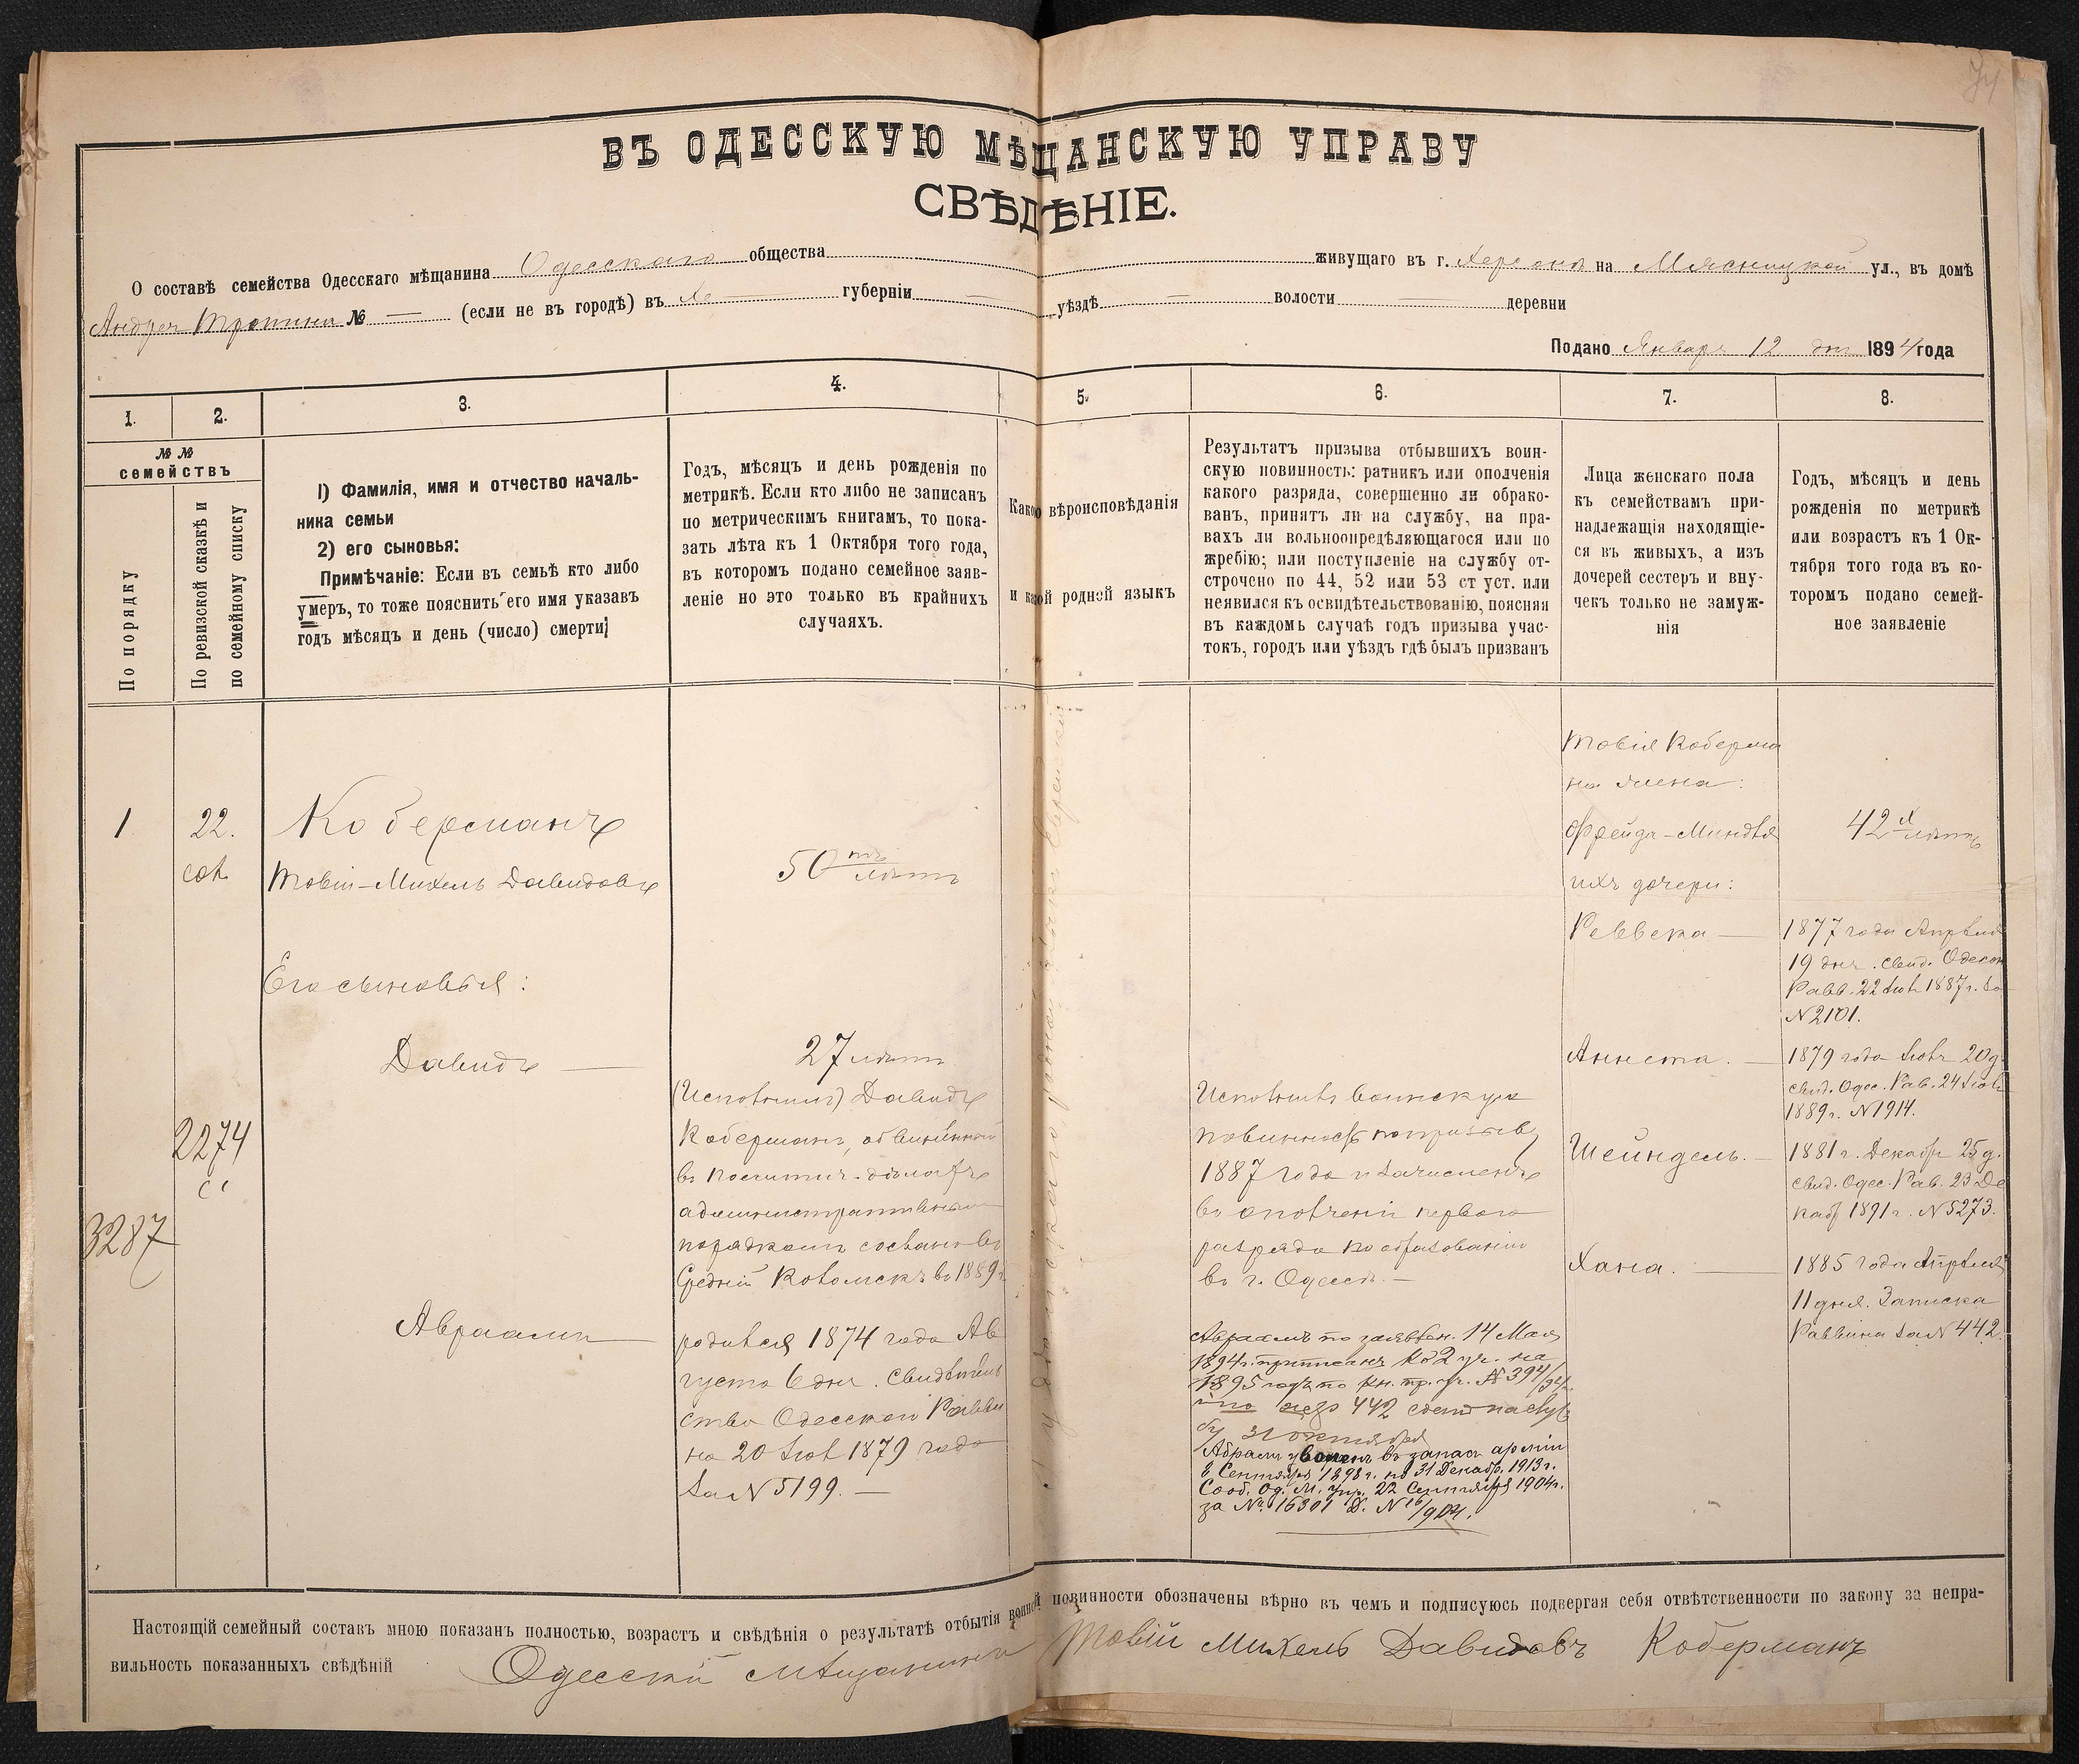 ВЪ ОДЕССКУЮ МѢЩАНСКУЮ УПРАВУ
СВѢДѢНІЕ.
О составѣ семейства Одесскаго мѣщанина Одесскаго общества живущаго въ г. Херсонѣ на Мясницкой ул., въ домѣ
Андрея Тропина № — (если не въ городѣ) въ губерніи — уѣздѣ — волости — деревни
Подано Января 12 дня 1894 года
1.
2.
3.
4.
5.
6.
7.
8.
№ №
семействъ
По порядку
По ревизской сказкѣ и
по семейному списку
1) Фамилія, имя и отчество началь-
ника семьи
2) его сыновья:
Примѣчаніе: Если въ семьѣ кто либо
умеръ, то тоже пояснить его имя указавъ
годъ мѣсяцъ и день (число) смерти
Годъ, мѣсяцъ и день рожденія по
метрикѣ. Если кто либо не записанъ
по метрическимъ книгамъ, то пока-
зать лѣта къ 1 Октября того года,
въ котором подано семейное заяв-
леніе но это только въ крайнихъ
случаяхъ.
Какого вѣроисповѣданія
и какой родной языкъ
Результатъ призыва отбывшихъ воин-
скую повинность: ратникъ или ополченія
какого разряда, совершенно ли обрако-
ванъ, принятъ ли на службу, на пра-
вахъ ли вольноопредѣляющагося или по
жребію; или поступленіе на службу от-
строчено по 44, 52 или 53 ст уст. или
неявился къ освидѣтельствованію, поясняя
въ каждомъ случаѣ годъ призыва учас-
токъ, городъ или уѣздъ гдѣ былъ призванъ
Лица женскаго пола
къ семействамъ при-
надлежащія находящіе-
ся въ живыхъ, а изъ
дочерей сестеръ и вну-
чекъ только не замуж-
нія
Годъ, мѣсяцъ и день
рожденія по метрикѣ
или возрастъ къ 1 Ок-
тября того года въ ко-
торомъ подано семей-
ное заявленіе
1
22.
3287
2274
Коберманъ
Товій-Михель Давидовъ
Его сыновья:
Давидъ —
Авраамъ —
50 лѣтъ
27 лѣтъ
Давидъ
Коберманъ, обвиненный
въ политич. дѣлахъ
административнымъ
порядкомъ сосланъ въ
Средній Колымскъ въ 1889 г.
родился 1874 года Ав
густа 6 дня. Свидѣтель
ство Одесскаго Равви
на 20 Іюл 1879 года
за N 5199. —
Исполнилъ воинскую
повинность по призыву
1887 года и зачисленъ
въ ополченіи перваго
разряда по образованію
въ г. Одессѣ. —
Авраамъ по заявлен. 14 Мая
1894 г. приписанъ ко 2 уч. на
1895 годъ по кн. пр. уч. № 394/94
442
31 октября
Абрамъ уволенъ въ запасъ арміи
8 Сентября 1898 г. по 31 Декабр. 1913 г.
Сооб. Од. М. Упр. 22 Сентября 1904 г.
за № 16301 Д. N 16/904.
Товія Коберма
на жена:
Фрейда-Миндля
ихъ дочери:
Реввека —
Аннета. —
Шейндель. —
Хана. —
42 лѣтъ
1877 года Апрѣля
19 дня. свид. Одеск
Равв. 22 Іюл 1887 г. за
N 2101.
1879 года Іюля 20 д.
свид. Одес. Рав. 24 Іюл
1889 г. N 1914.
1881 г. Декабр 25 д.
свид. Одес. Рав. 23 Де
кабр 1891 г. N 5273.
1885 года Апрѣля
11 дня. Записка
Раввина за N 442.
Настоящій семейный составъ мною показанъ полностью, возрастъ и свѣдѣнія о результатѣ отбытія воинской повинности обозначены вѣрно въ чемъ и подписуюсь подвергая себя отвѣтственности по закону за непра-
вильность показанныхъ свѣдѣній Одесскій мѣщанинъ Товій Михель Давидовъ Коберманъ